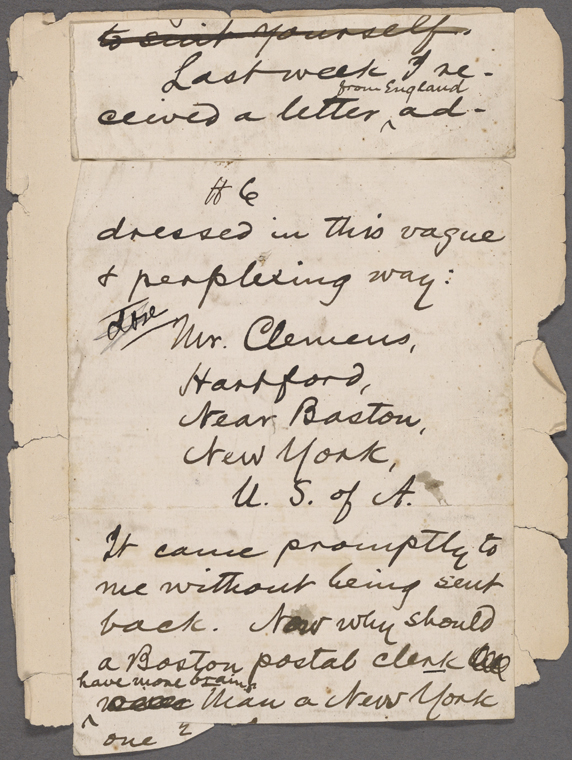 to suit yourself.
Last week I re-
from England
ceived a letter ^ ad-
H 6
dressed in this vague
& perplexing way:
Mr. Clemens,
Hartford,
Near Baston,
New York,
U. S. of A.
It came promptly to
me without being sent
back. Now why should
a Boston postal clerk
have more brains
^ than a New York
one ?